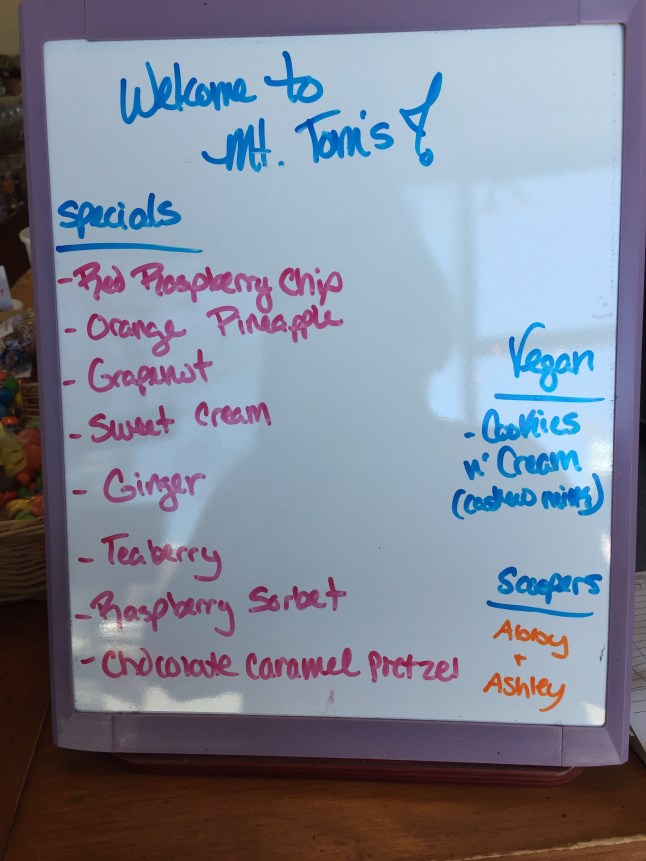 Welcome to
Mt. Tom's!
Specials
- Red Raspberry Chip
- Orange Pineapple
- Grapenut
- Sweet Cream
- Ginger
- Teaberry
- Raspberry Sorbet
- Chocolate Caramel Pretzel
Vegan
- Cookies
n' Cream
(cashew milk)
Scoopers
Abby
+
Ashley